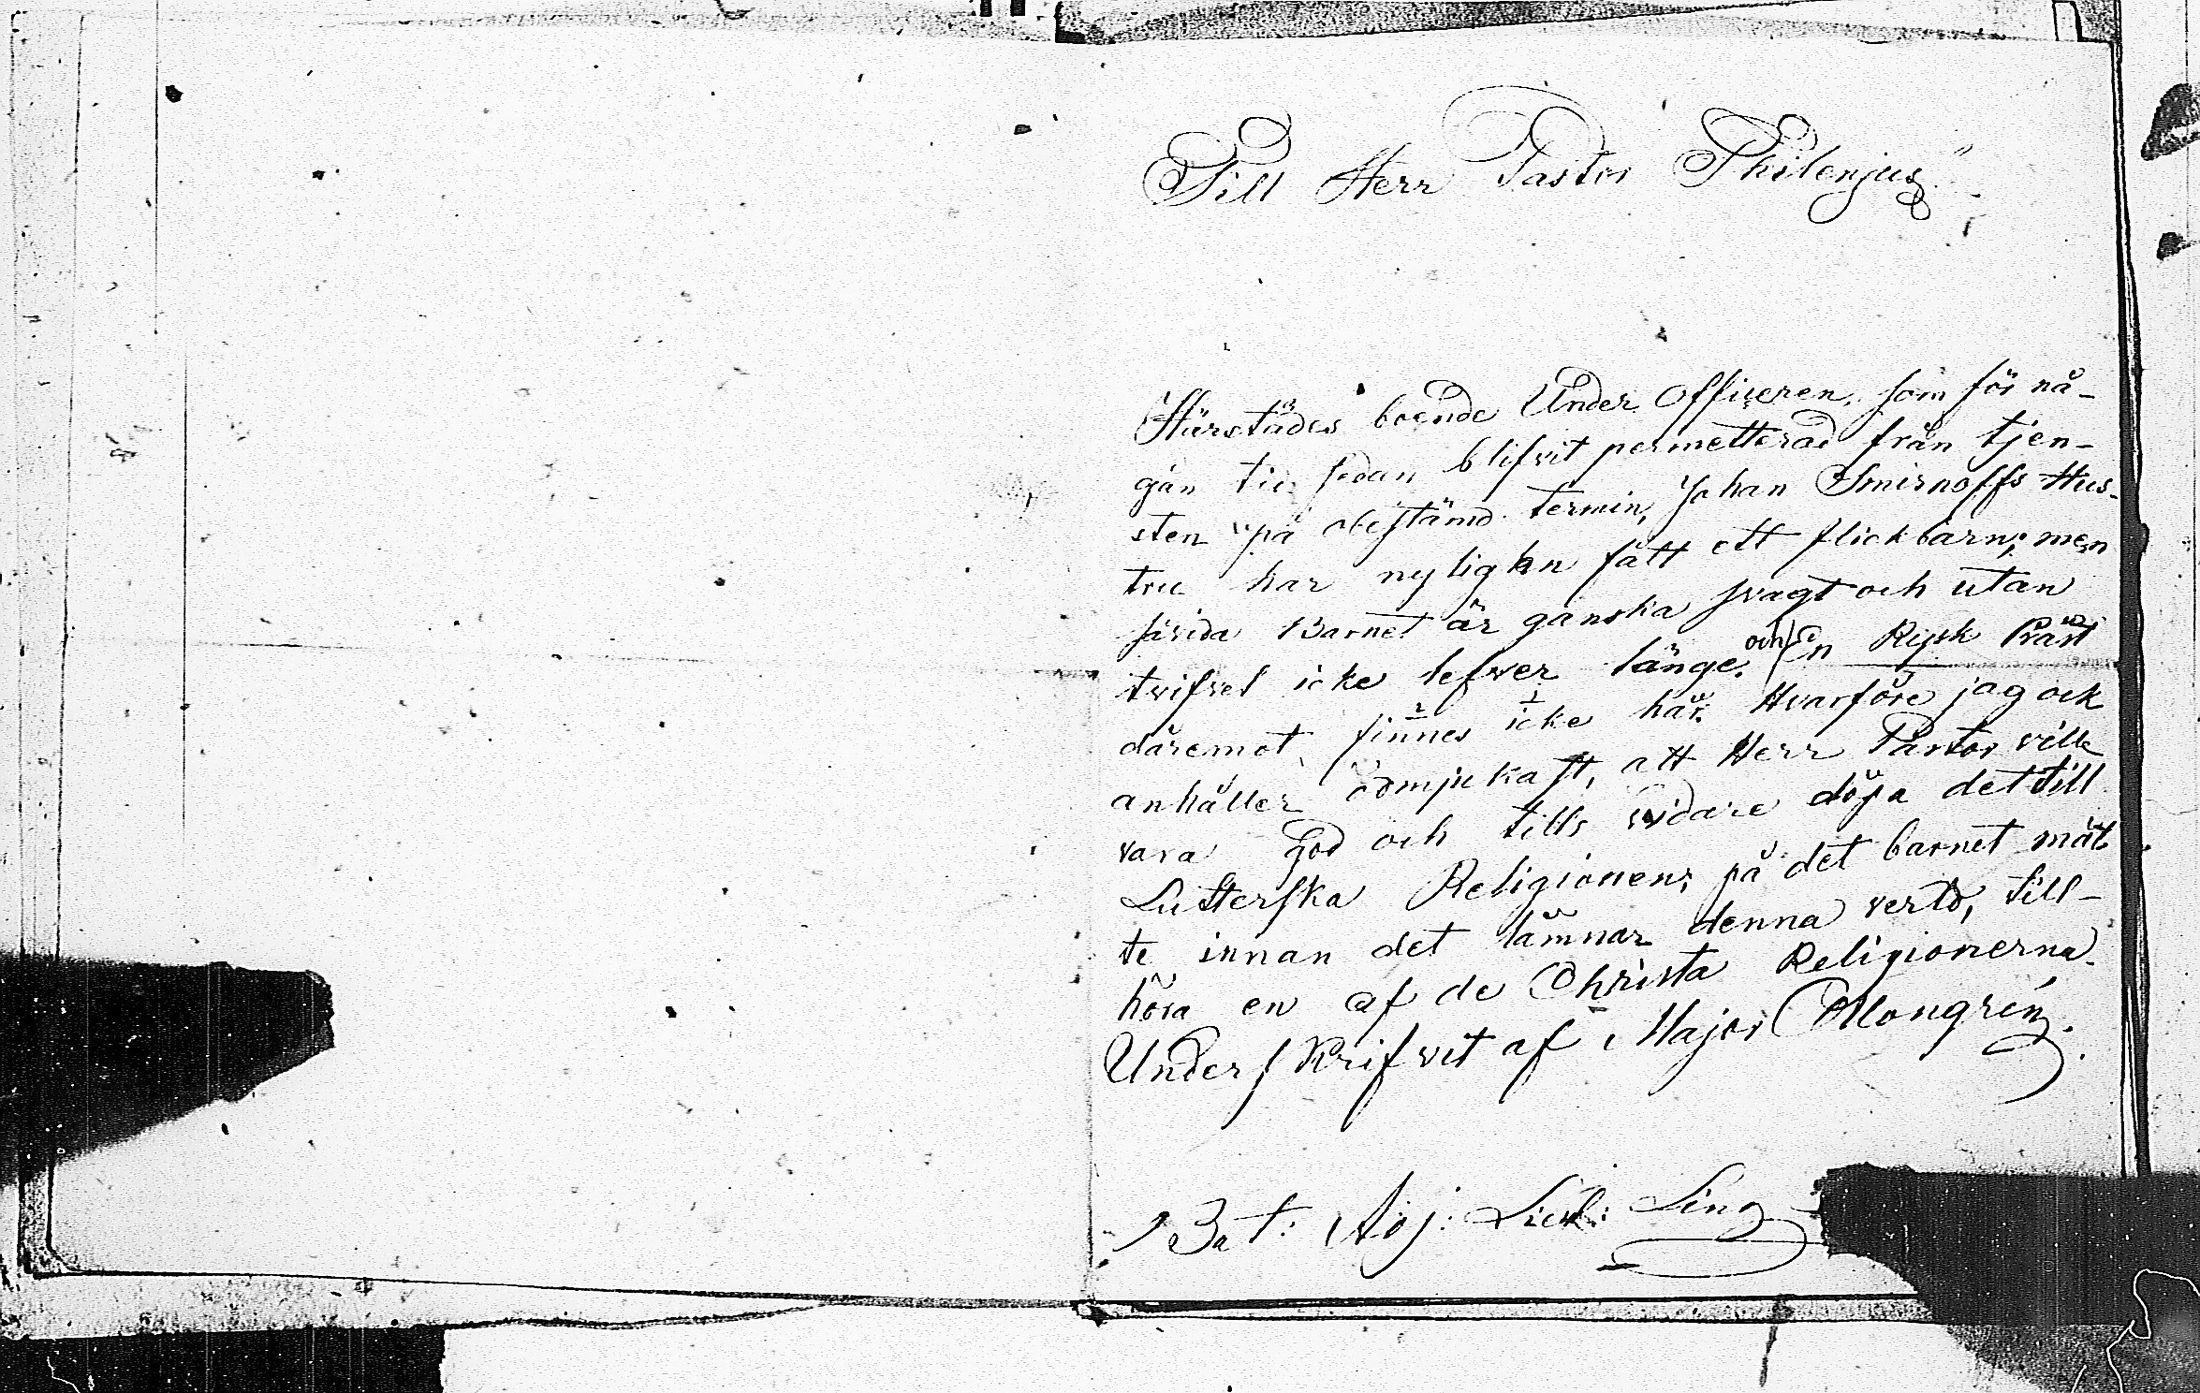 Till Herr Pastor Thilenjus
Härstädes boende Under Officeren, som för nå-
gån tid sedan blifvit permetterad från tjen-
sten på obestämd termin, Johan Smirnoffs Hus-
tru har nyligen fått ett flickbarn; men
såvida Barnet är ganska svagt och utan
tvifvel icke lefver länge. och En Rysk Präst
däremot finnes icke här. Hvarföre jag ock
anhåller ödmjukast, att Herr Pastor ville
vara god och tills vidare döpa det till
Lutterska Religionen; på det barnet måt
te innan det lämnar denna verld, till-
höra en af de Christa Religionerna.
Underskrifvit af Major Mongrén.
Bat: Adj: Lieut: